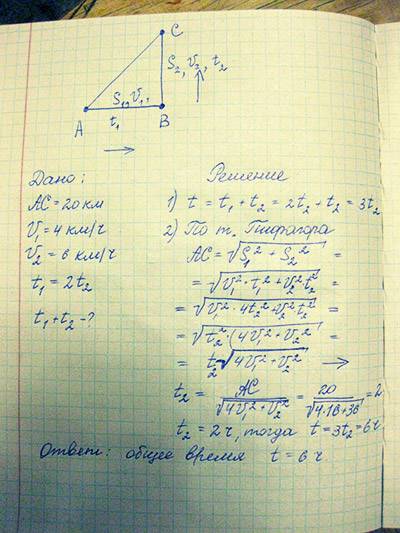 C
S₂, V₂, t₂
S₁, V₁,
A t₁ B
Дано:
AC = 20 км
V₁ = 4 км/ч
V₂ = 6 км/ч
t₁ = 2t₂
t₁ + t₂ - ?
Решение
1) t = t₁ + t₂ = 2t₂ + t₂ = 3t₂
2) По т. Пифагора
AC = √(S₁² + S₂²) =
= √(V₁² · t₁² + V₂² t₂²) =
= √(V₁² · 4t₂² + V₂² t₂²) =
= √(t₂² · (4V₁² + V₂²) =
= t₂√(4V₁² + V₂²) →
t₂ = AC/√(4V₁² + V₂²) = 20/√(4·16+36) = 2
t₂ = 2 ч, тогда t = 3t₂ = 6 ч
Ответ: общее время t = 6 ч